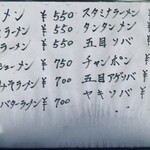 メン ¥550
ラーメン ¥550
ューメン ¥750
みそラーメン ¥700
バターラーメン ¥700
スタミナラーメン ¥
タンタンメン ¥
五目ソバ ¥
チャンポン ¥
五目アゲソバ ¥
ヤキソバ ¥